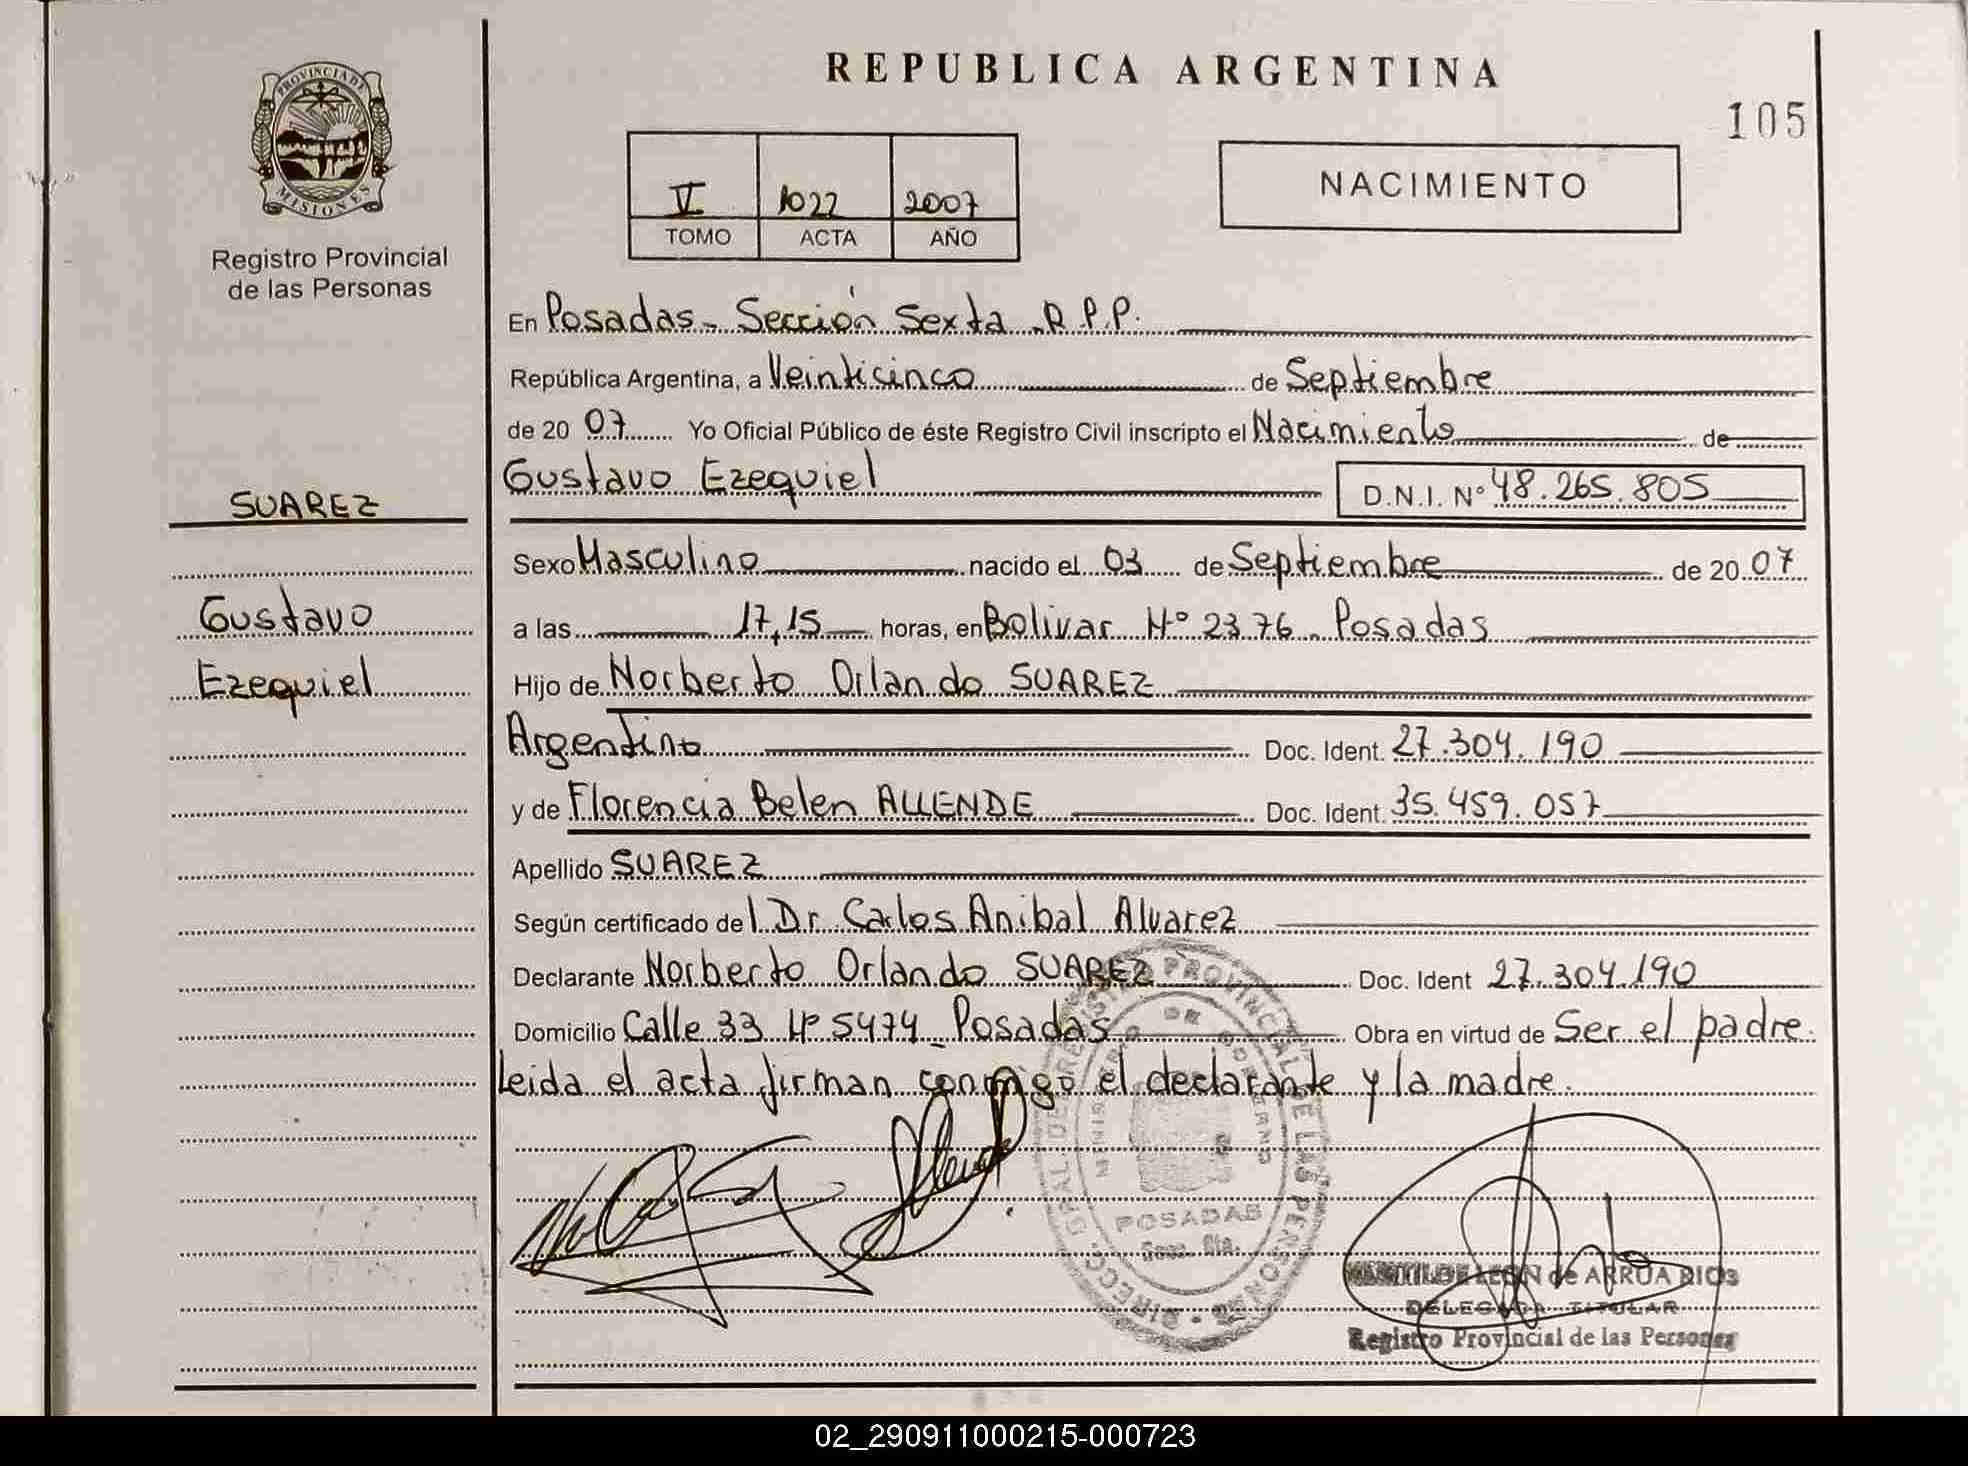 REPUBLICA ARGENTINA
105
PROVINCIA DE
MISIONES
Registro Provincial
de las Personas
V 1022 2007
TOMO ACTA AÑO
NACIMIENTO
En Posadas - Sección Sexta R.P.P.
República Argentina, a Veinticinco de Septiembre
de 20 07 Yo Oficial Público de éste Registro Civil inscripto el Nacimiento de
Gustavo Ezequiel D.N.I. Nº 48.265.805
SUAREZ
Sexo Masculino nacido el 03 de Septiembre de 20 07
Gustavo
a las 17,15 horas, en Bolivar Nº 2376 - Posadas
Ezequiel
Hijo de Norberto Orlando SUAREZ
Argentino Doc. Ident. 27.304.190
y de Florencia Belen ALLENDE Doc. Ident. 35.459.057
Apellido SUAREZ
Según certificado del Dr. Carlos Anibal Alvarez
Declarante Norberto Orlando SUAREZ Doc. Ident 27.304.190
Domicilio Calle 33 Nº 5474 Posadas Obra en virtud de Ser el padre.
Leida el acta firman conmigo el declarante y la madre.
DIRECC. GRAL. DE REGISTRO PROVINCIAL DE LAS PERSONAS
MINISTERIO DE GOBIERNO
POSADAS
Secc. 6ta.
LEON de ARRUA RIOS
DELEGADA TITULAR
Registro Provincial de las Personas
02_290911000215-000723